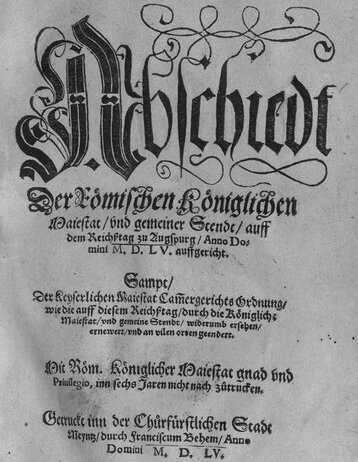 Abschiedt
Der Römischen Königlichen
Maiestat/ vnd gemeiner Stendt/ auff
dem Reichßtag zu Augspurg/ Anno Do-
mini M. D. LV. auffgericht.
Sampt/
Der Keyserlichen Maiestat Camergerichts Ordnung/
wie die auff diesem Reichßtag/ durch die Königliche
Maiestat/ vnd gemeine Stendt/ widerumb ersehen/
ernewert/ vnd an vilen orten geendert.
Mit Röm. Königlicher Maiestat gnad vnd
Priuilegio, inn sechs Jaren nicht nach zůtrucken.
Getruckt inn der Chürfürstlichen Stadt
Meyntz/ durch Franciscum Behem/ Anno
Domini M. D. LV.